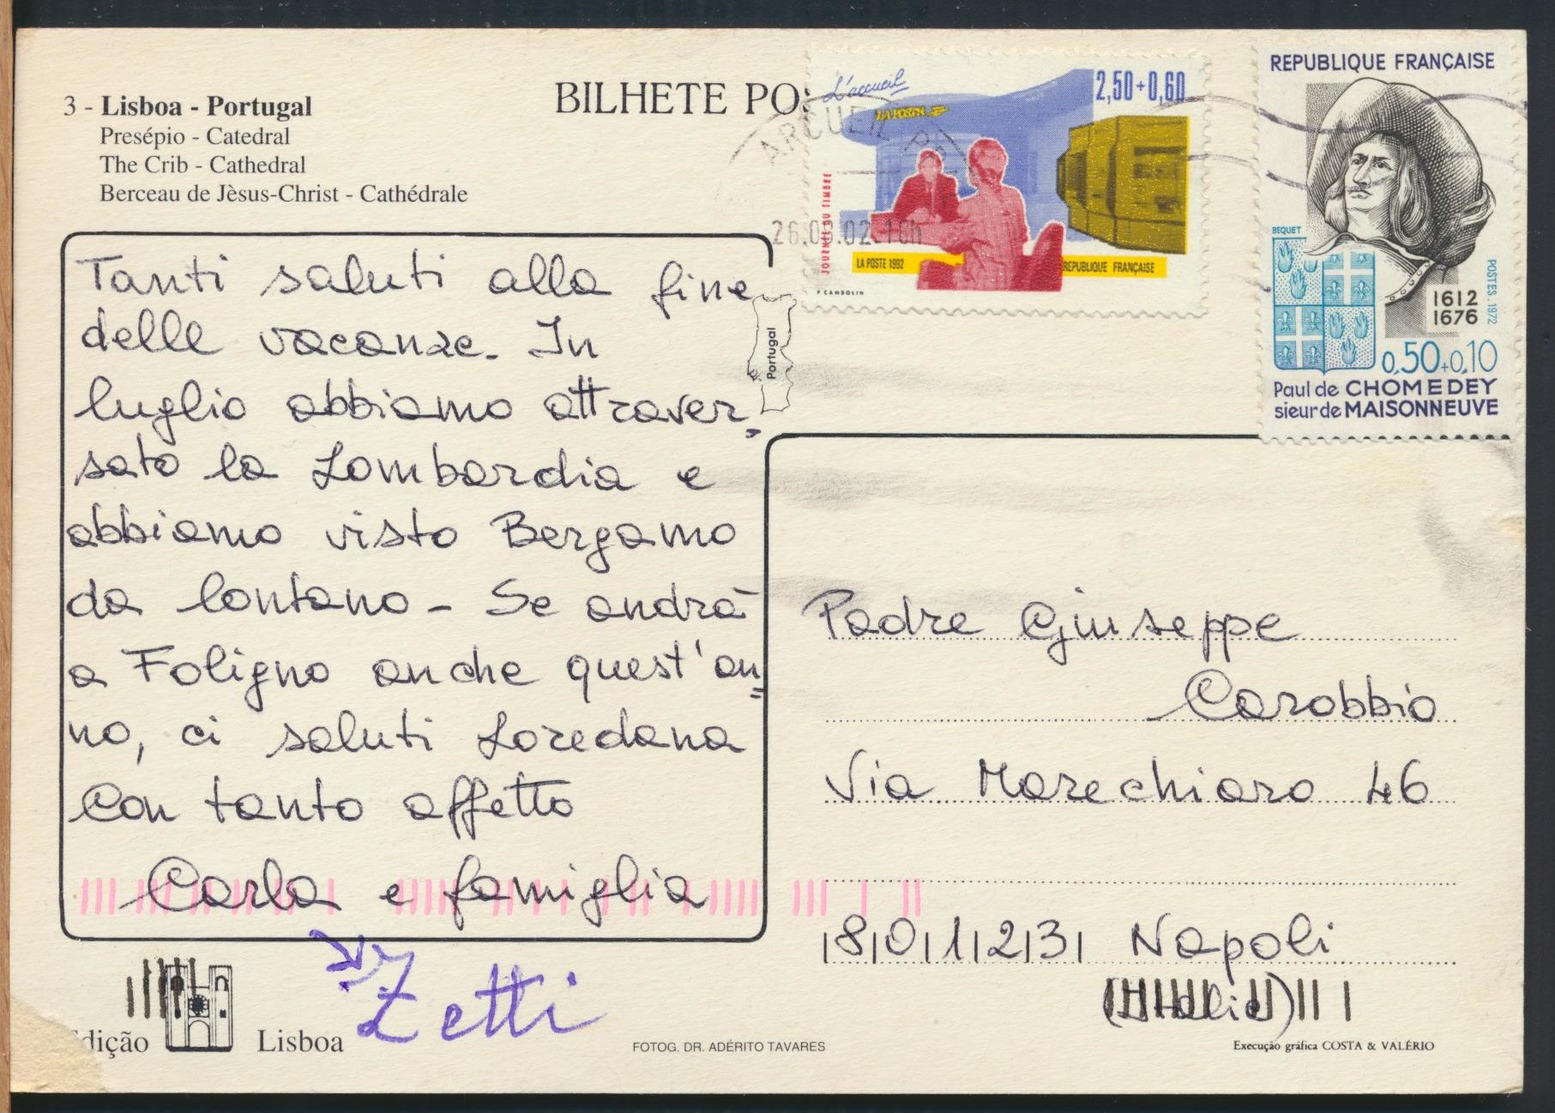 3 - Lisboa - Portugal
Presépio - Catedral
The Crib - Cathedral
Berceau de Jèsus-Christ - Cathédrale
BILHETE PO
L'accueil
LA POSTE
2,50+0,60
JOURNÉE DU TIMBRE
LA POSTE 1992
REPUBLIQUE FRANÇAISE
ARCUEIL
REPUBLIQUE FRANÇAISE
BEQUET
POSTES. 1972
1612
1676
0,50+0,10
Paul de CHOMEDEY
sieur de MAISONNEUVE
Portugal
Tanti saluti alla fine
delle vacanze. In
luglio abbiamo attraver-
sato la Lombardia e
abbiamo visto Bergamo
da lontano - Se andrà
a Foligno anche quest'an=
no, ci saluti Loredana
Con tanto affetto
Carla e famiglia
Zetti
Padre Giuseppe
Carobbio
Via Marechiaro 46
80123 Napoli
(Italie)
dição
Lisboa
FOTOG. DR. ADÉRITO TAVARES
Execução gráfica COSTA & VALÉRIO